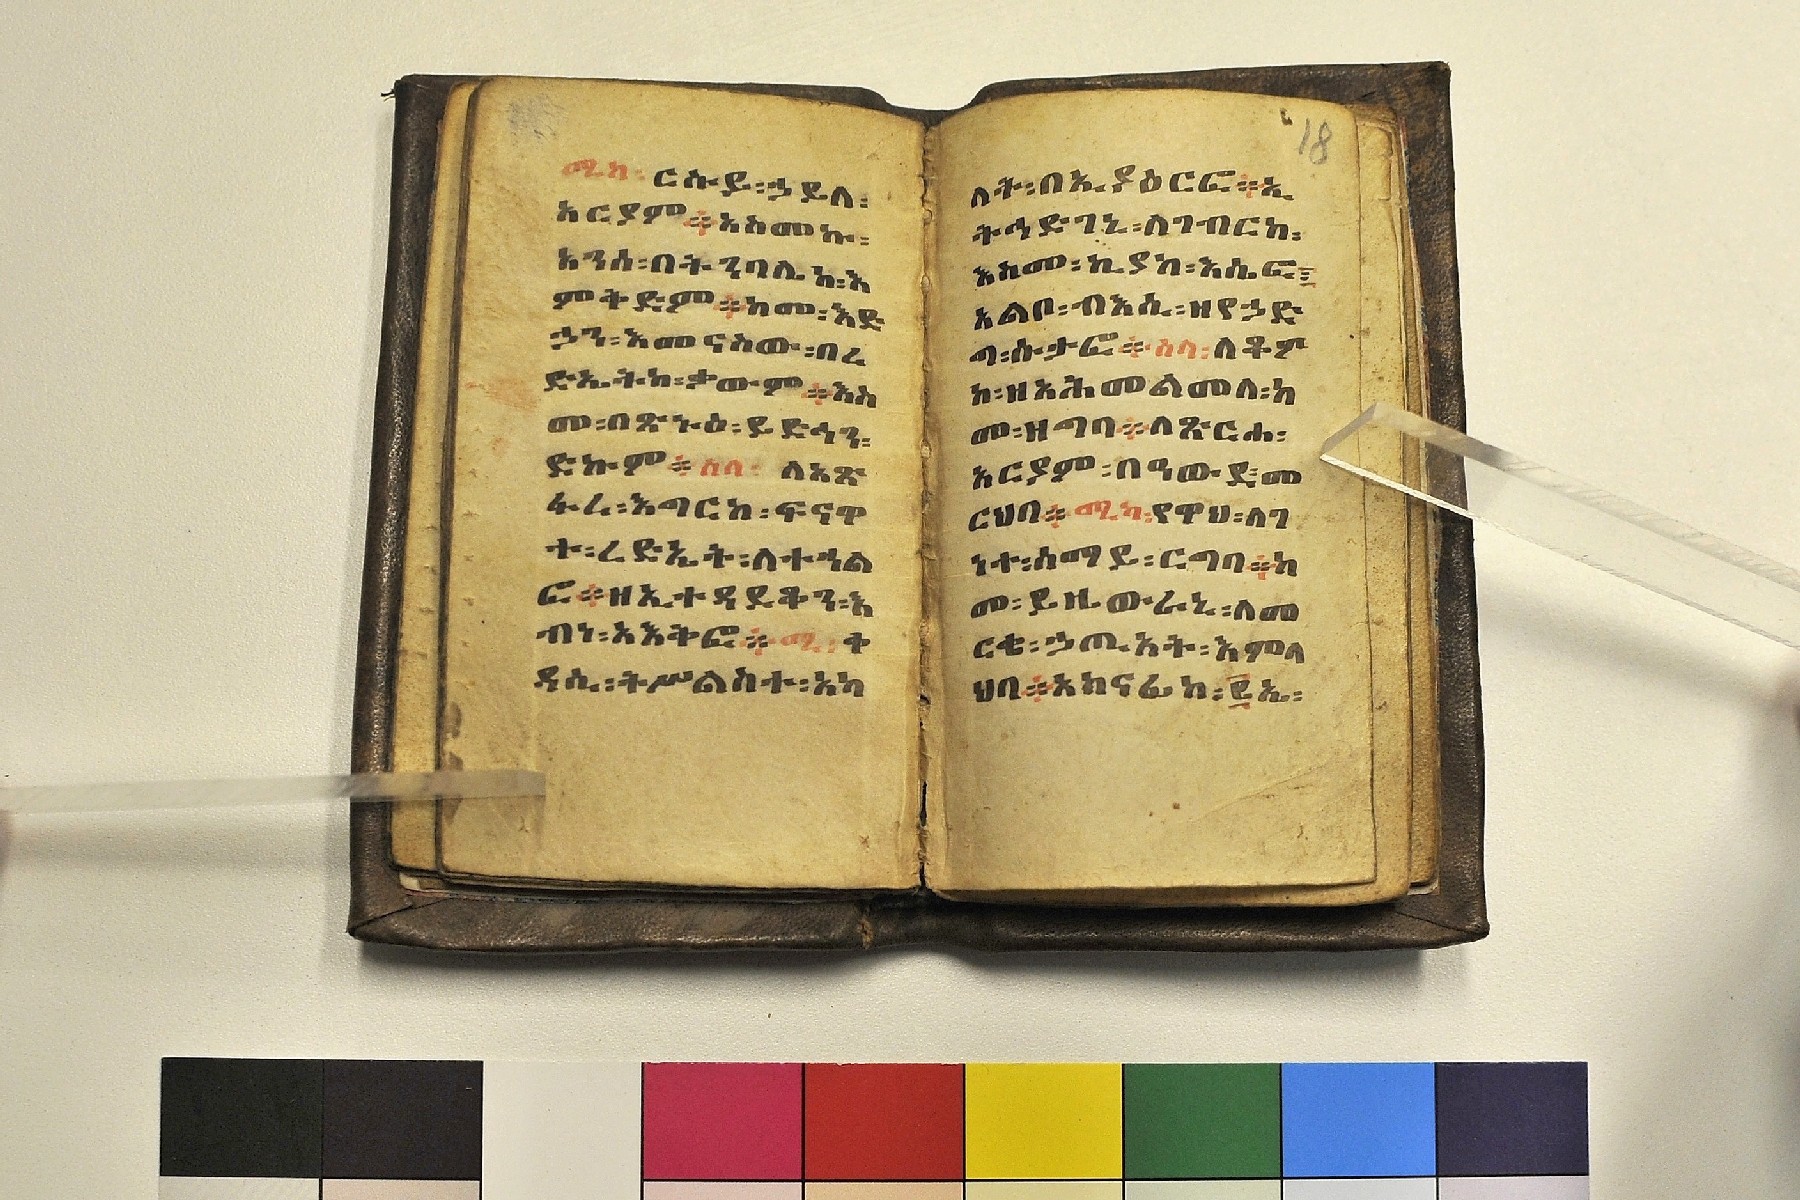 ሚካ፡ ርሱይ፡ኃይለ፡
አርያም፨አስመኩ፡
አንሰ፡በትንባሌከ፡እ
ምትድም፨ከመ፡እድ
ኃን፡እመናስው፡በረ
ድኤትከ፡ቃውም፨እስ
መ፡በጽኑዕ፡ይድኅን፡
ድኩም፨ሰላ፡ ለአጽ
ፋረ፡እግርከ፡ፍናዋ
ተ፡ረድኤት፡ለተኅል
ፎ፨ዘኢተዳደቅን፡እ
ብነ፡አእትፎ፨ሚ፡ ቀ
ዳሲ፡ትሥልስተ፡አካ
18
ላት፡በኢያዕርፎ፨ኢ
ትኅድገኒ፡ለገብርከ፡
እስመ፡ኪያከ፡እሴፎ፤
አልቦ፡ብእሲ፡ዘየኃድ
ግ፡ሱታፎ፨ሰላ፡ለቆም
ከ፡ዘአሕመልመለ፡ከ
መ፡ዘግባ፨ለጽርሐ፡
አርያም፡በዓውደ፡መ
ርህባ፨ሚካ፡የዋህ፡ለገ
ነተ፡ሰማይ፡ርግባ፨ከ
መ፡ይዚውራኒ፡ለመ
ርቄ፡ኃጢአት፡እምላ
ህባ፨አክናፊከ፡፪ኤ፡